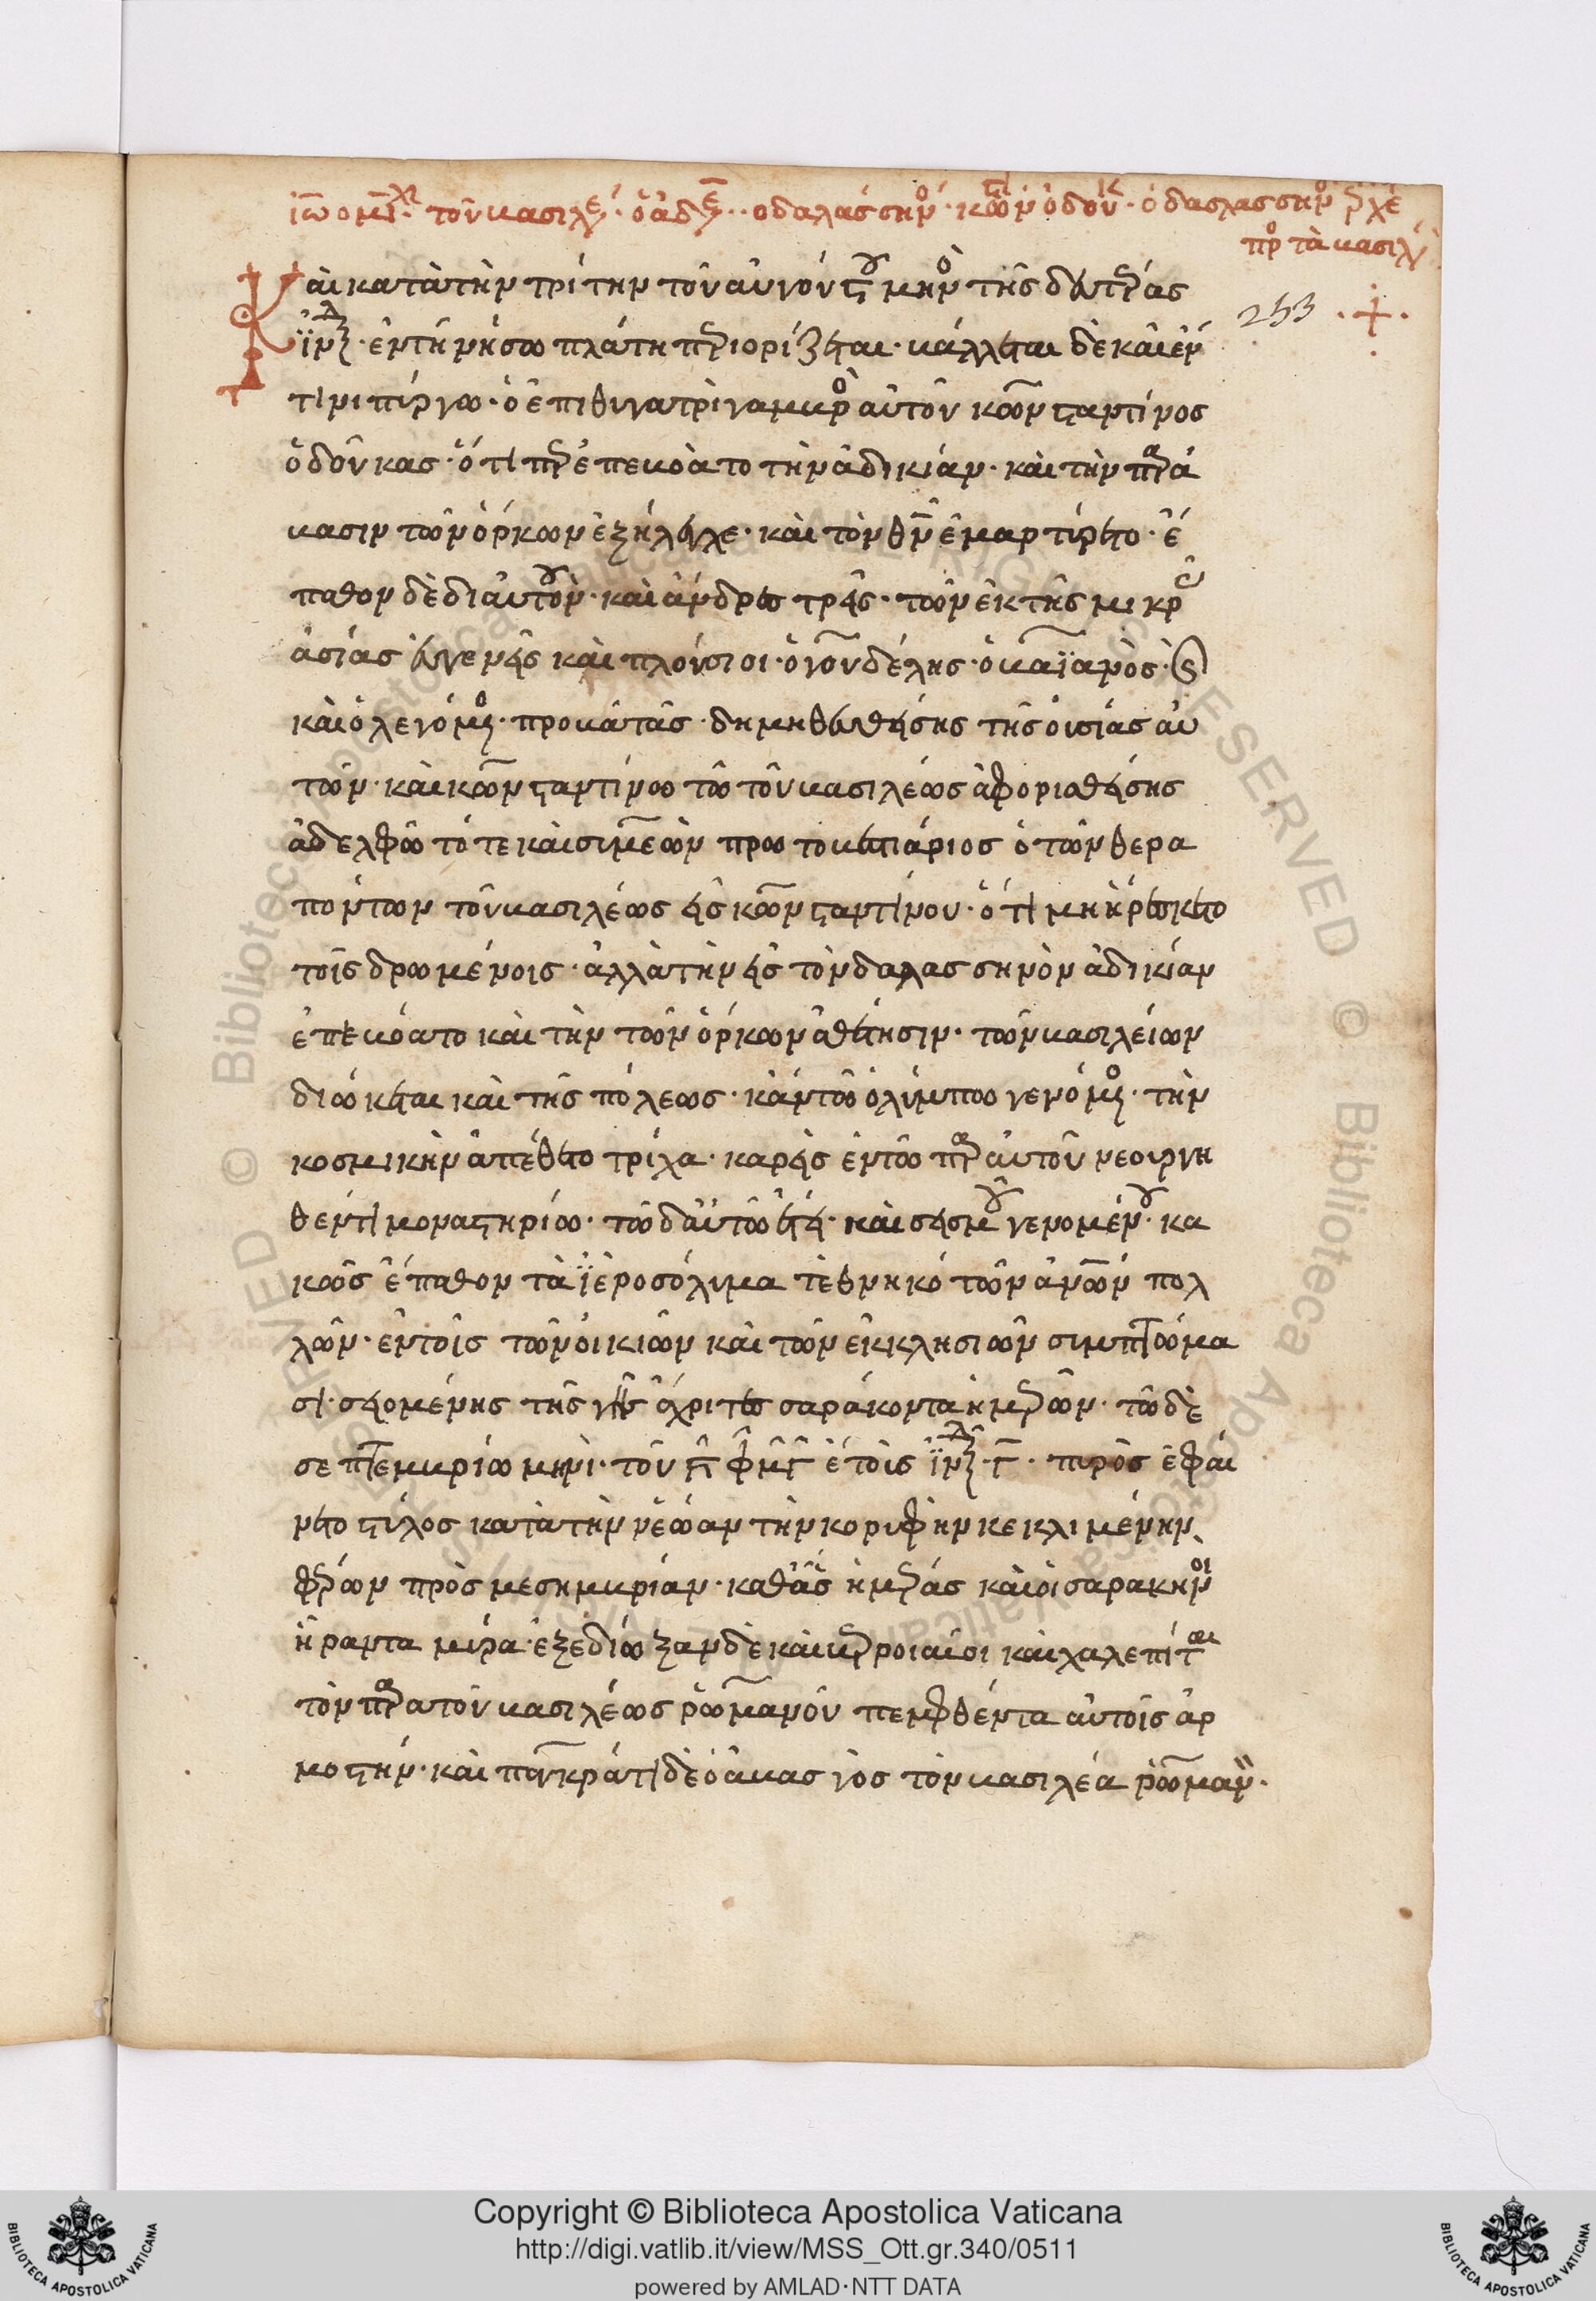 καὶ κατὰ τὴν τρίτην τοῦ αὐγούστου μηνὸς τῆς δευτέρας
253
ἰνδ · ἐν τῆ νήσω πλάτη περιορίζεται · βάλλεται δὲ καὶ ἐν
τινι πύργω · ὁ ἐπι θυγατρὶ γαμβρὸς αὐτοῦ κωνσταντίνος
ὁ δούκας · ὅτι περ ἐπεβόατο τὴν ἀδικίαν · καὶ τὴν παρά
βασιν τῶν ὅρκων ἐξήλεγχε · καὶ τὸν θν ἐμαρτύρετο · ἔ
παθον δὲ δι αὐτὸν · καὶ ἄνδρες τρεῖς · τῶν ἐκ τῆς μικρ
ἀσίας εὐγενεῖς καὶ πλούσιοι · ὁ γουδέλης · ὁ βαϊανὸς ·
καὶ ὁ λεγόμενος · προβατᾶς · δημηθευθείσης τῆς οὐσίας αὐ
τῶν · καὶ κωνσταντίνω τῶ τοῦ βασιλέως ἀφορισθείσης
ἀδελφῶ τό τε καὶ συμεὼν πρωτοβεστιάριος ὁ τῶν θερα
πόντων τοῦ βασιλέως εἷς κωνσταντίνου · ὅτι μὴ ἠρέσκετο
τοῖς δρωμένοις · ἀλλὰ τὴν εἰς τὸν δαλασσηνὸν ἀδικίαν
ἐπεβόατο καὶ τὴν τῶν ὅρκων ἀθέτησιν · τῶν βασιλείων
διώκεται καὶ τῆς πόλεως · κἀν τῶ ὀλύμπω γενόμενος · τὴν
κοσμικὴν ἀπέθετο τρίχα · καρεὶς ἐν τῶ παρ αὐτοῦ νεουργη
θέντι μοναστηρίω · τῶ δ αὐτῶ ἔτει · καὶ σεισμοῦ γενομένου · κα
κῶς ἔπαθον τὰ ἱεροσόλυμα τεθνηκότων ανων πολ
λῶν · ἐν τοῖς τῶν οἰκιῶν καὶ τῶν ἐκκλησιῶν συμπτώμα
σι · σειομένης τῆς γῆς ἄχρι τεσσαράκοντα ἡμερῶν · τῶ δὲ
σεπτεμβρίω μηνὶ · τοῦ ϛ φ μ γ ἔτοις ἰνδ · γ · πυρὸς ἐφαί
νετο στύλος κατὰ τὴν νέωαν τὴν κορυφὴν κεκλιμένην
φέρων πρὸς μεσημβρίαν · καθ ἃς ἡμέρας καὶ οἱ σαρακηνοὶ
ἥραντα μύρα · ἐξεδίωξαν δὲ καὶ βεροιαῖοι καὶ χαλεπίται
τὸν παρα τοῦ βασιλέως ῥωμανοῦ πεμφθέντα αὐτοῖς ἁρ
μοστήν · καὶ παγκράτι δὲ ὁ ἀβασγὸς τὸν βασιλέα ῥωμαν ·
Copyright © Biblioteca Apostolica Vaticana
http://digi.vatlib.it/view/MSS_Ott.gr.340/0511
powered by AMLAD·NTT DATA
BIBLIOTECA APOSTOLICA VATICANA
BIBLIOTECA APOSTOLICA VATICANA